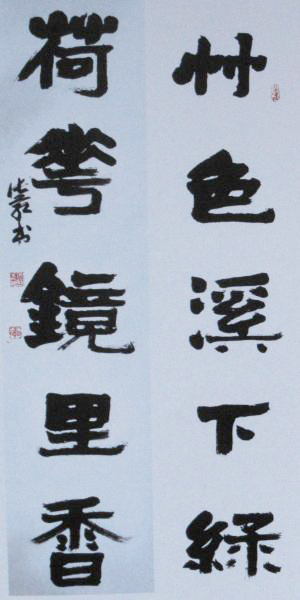 竹色溪下綠
荷華鏡里香